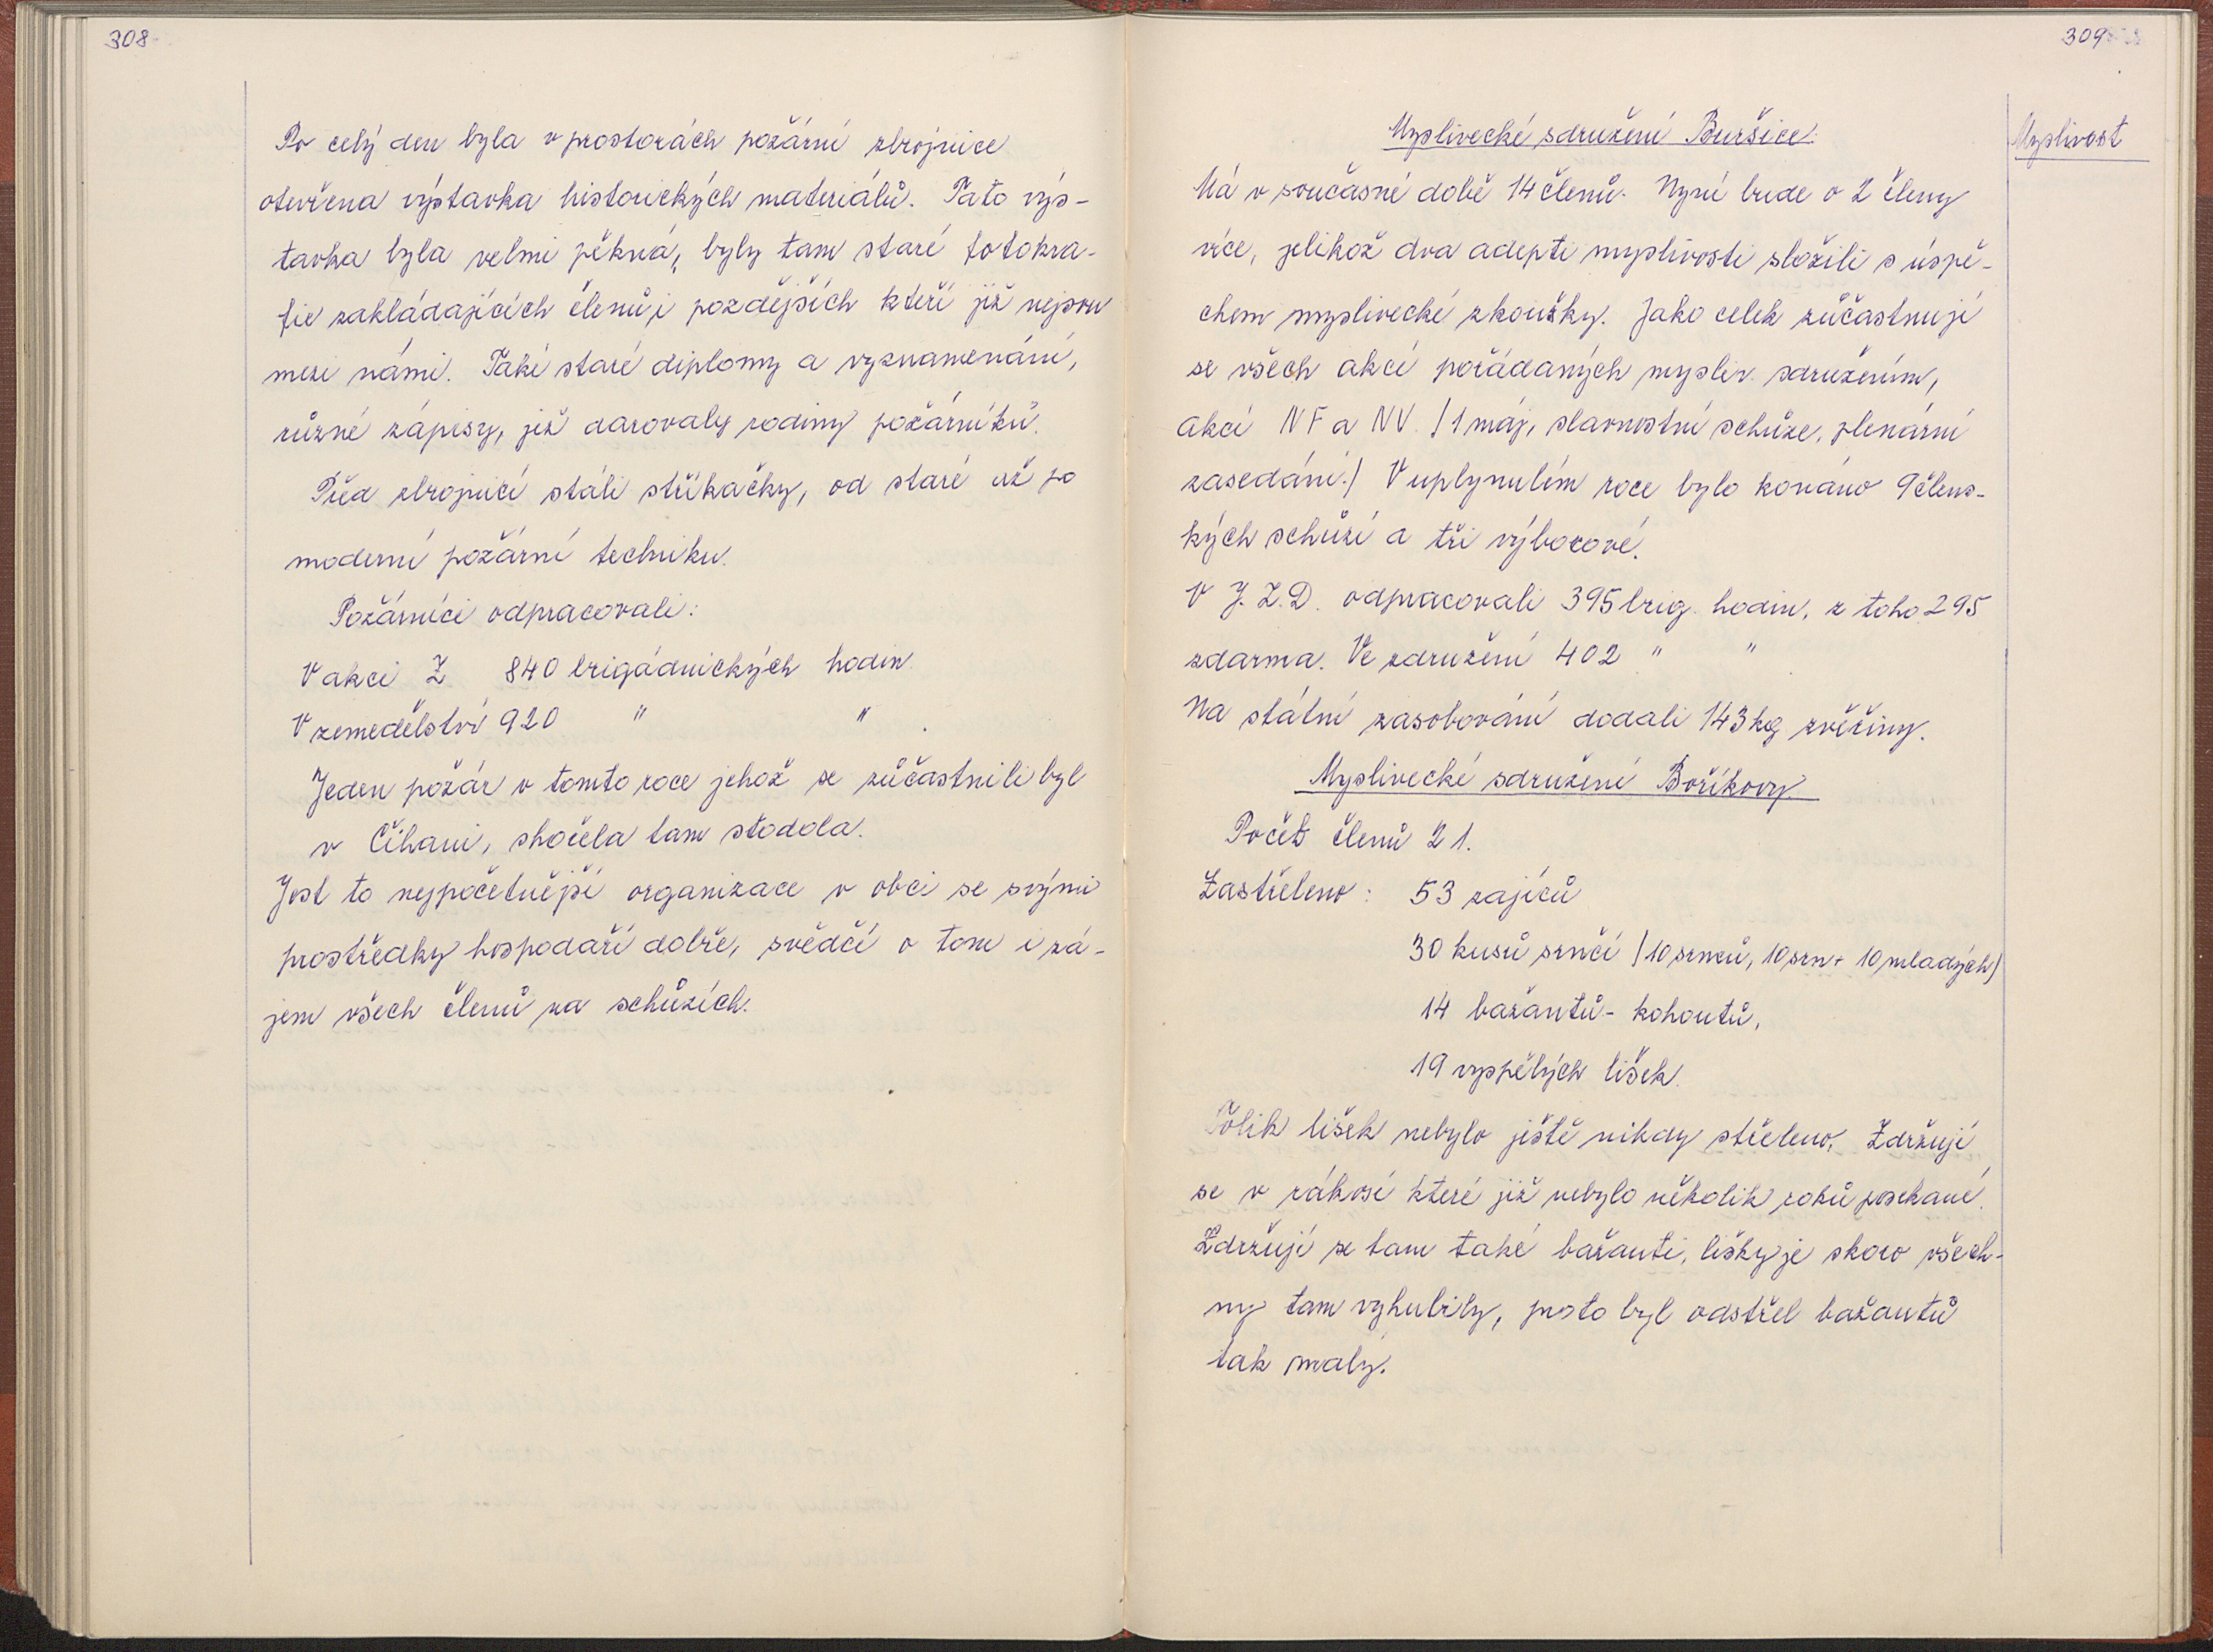 308
Po celý den byla v prostorách požární zbrojnice
otevřena výstavka historických materiálů. Tato výs-
tavka byla velmi pěkná, byly tam staré fotokra-
fie zakládajících členů, i pozdějších kteří již nejsou
mezi námi. Také staré diplomy a vyznamenání,
různé zápisy, již darovaly rodiny požárníků.
Před zbrojnicí stáli stříkačky, od staré až po
moderní požární techniku.
Požárníci odpracovali:
V akci Z 840 brigádnických hodin
V zemedělství 920 " "
Jeden požár v tomto roce jehož se zůčastnili byl
v Čihani, shořela tam stodola.
Jest to nejpočetnější organizace v obci se svými
prostředky hospodaří dobře, svědčí o tom i zá-
jem všech členů na schůzích.
309
Myslivost
Myslivecké sdružení Buršice:
Má v současné době 14 členů. Nyní bude o 2 členy
více, jelikož dva adepti myslivosti složili s úspě-
chem myslivecké zkoužky. Jako celek zůčastnují
se všech akcí pořádaných mysliv. sdružením,
akcí NF a NV. /1 máj, slavnostní schůze, plenární
zasedání./ V uplynulém roce bylo konáno 9 člens-
kých schůzí a tři výborové.
V J.Z.D. odpracovali 395 brig. hodin, z toho 295
zdarma. Ve združení 402 " "
Na státní zasobování dodali 143 kg zvěřiny.
Myslivecké sdružení Boříkovy
Počet členů 21.
Zastřeleno: 53 zajíců
30 kusů srnčí /10 srnců, 10 srn + 10 mladých/
14 bažantů - kohoutů,
19 vyspělých lišek.
Tolik lišek nebylo ještě nikdy střeleno. Zdržují
se v rákosí které již nebylo několik roků posekané.
Zdržují se tam také bažanti, lišky je skoro všech-
ny tam vyhubily, proto byl odstřel bažantů
tak malý.